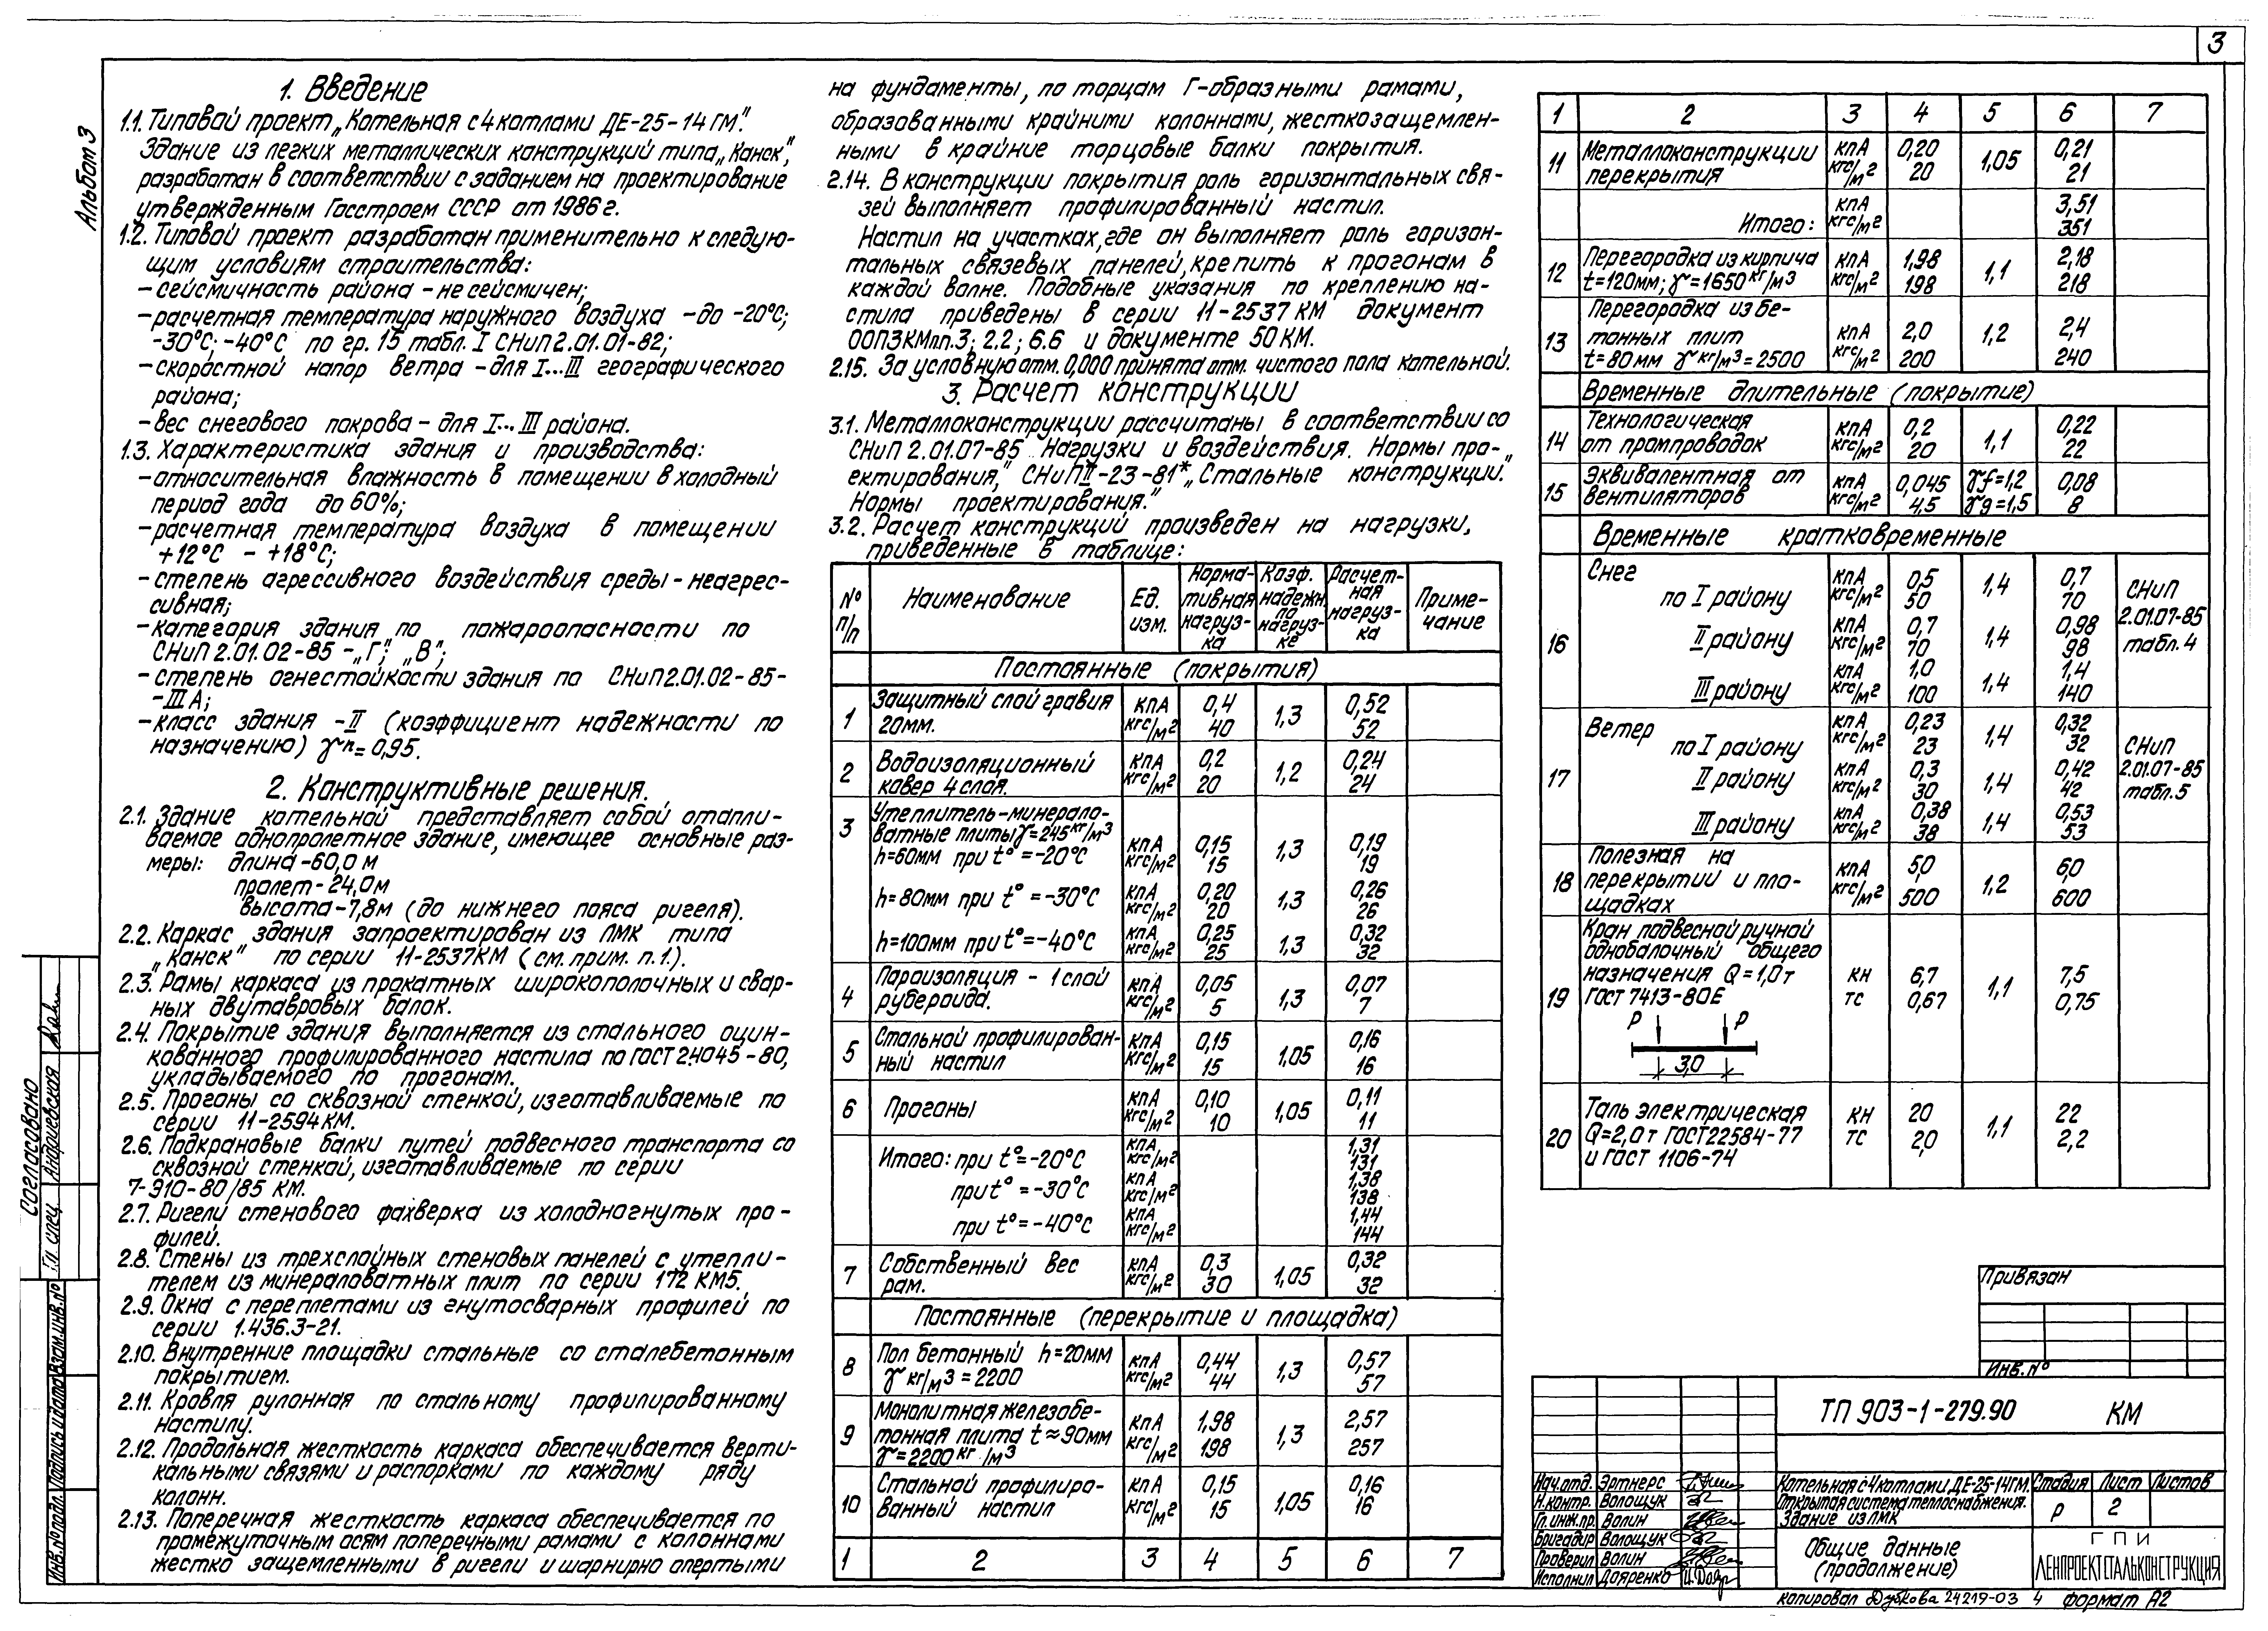 3
Альбом 3
1. Введение
1.1. Типовой проект „Котельная с 4 котлами ДЕ-25-14 ГМ."
Здание из легких металлических конструкций типа „Канск",
разработан в соответствии с заданием на проектирование
утвержденным Госстроем СССР от 1986 г.
1.2. Типовой проект разработан применительно к следую-
щим условиям строительства:
- сейсмичность района - не сейсмичен;
- расчетная температура наружного воздуха - до -20°С;
-30°С; -40°С по гр. 15 табл. I СНиП 2.01.01-82;
- скоростной напор ветра - для I...III географического
района;
- вес снегового покрова - для I...III района.
1.3. Характеристика здания и производства:
- относительная влажность в помещении в холодный
период года до 60%;
- расчетная температура воздуха в помещении
+12°С - +18°С;
- степень агрессивного воздействия среды - неагрес-
сивная;
- категория здания по пожароопасности по
СНиП 2.01.02-85 - „Г"; „В";
- степень огнестойкости здания по СНиП 2.01.02-85-
- IIIА;
- класс здания - II (коэффициент надежности по
назначению) γn = 0,95.
2. Конструктивные решения.
2.1. Здание котельной представляет собой отапли-
ваемое однопролетное здание, имеющее основные раз-
меры: длина - 60,0 м
пролет - 24,0 м
высота - 7,8 м (до нижнего пояса ригеля).
2.2. Каркас здания запроектирован из ЛМК типа
„Канск" по серии 11-2537КМ (см. прим. п. 1.).
2.3. Рамы каркаса из прокатных широкополочных и свар-
ных двутавровых балок.
2.4. Покрытие здания выполняется из стального оцин-
кованного профилированного настила по ГОСТ 24045-80,
укладываемого по прогонам.
2.5. Прогоны со сквозной стенкой, изготавливаемые по
серии 11-2594 КМ.
2.6. Подкрановые балки путей подвесного транспорта со
сквозной стенкой, изготавливаемые по серии
7-910-80/85 КМ.
2.7. Ригели стенового фахверка из холодногнутых про-
филей.
2.8. Стены из трехслойных стеновых панелей с утепли-
телем из минераловатных плит по серии 172 КМ5.
2.9. Окна с переплетами из гнутосварных профилей по
серии 1.436.3-21.
2.10. Внутренние площадки стальные со сталебетонным
покрытием.
2.11. Кровля рулонная по стальному профилированному
настилу.
2.12. Продольная жесткость каркаса обеспечивается верти-
кальными связями и распорками по каждому ряду
колонн.
2.13. Поперечная жесткость каркаса обеспечивается по
промежуточным осям поперечными рамами с колоннами
жестко защемленными в ригели и шарнирно опертыми
на фундаменты, по торцам Г-образными рамами,
образованными крайними колоннами, жестко защемлен-
ными в крайние торцовые балки покрытия.
2.14. В конструкции покрытия роль горизонтальных свя-
зей выполняет профилированный настил.
Настил на участках, где он выполняет роль горизон-
тальных связевых панелей, крепить к прогонам в
каждой волне. Подобные указания по креплению на-
стила приведены в серии 11-2537 КМ документ
00ПЗКМ пп. 3; 2.2; 6.6 и документе 50 КМ.
2.15. За условную отм. 0,000 принята отм. чистого пола котельной.
3. Расчет конструкции
3.1. Металлоконструкции рассчитаны в соответствии со
СНиП 2.01.07-85 „Нагрузки и воздействия. Нормы про-
ектирования," СНиП II-23-81* „Стальные конструкции.
Нормы проектирования."
3.2. Расчет конструкций произведен на нагрузки,
приведенные в таблице:
№ п/п Наименование Ед. изм. Норма-тивная нагруз-ка Коэф. надежн. по нагруз-ке Расчет-ная нагруз-ка Приме-чание
Постоянные (покрытия)
1 Защитный слой гравия кПА 0,4 1,3 0,52
20мм. кгс/м2 40 52
2 Водоизоляционный кПА 0,2 1,2 0,24
ковер 4 слоя. кгс/м2 20 24
3 Утеплитель-минерало-
ватные плиты γ=245 кг/м3
h=60мм при t° = -20°С кПА кгс/м2 0,15 15 1,3 0,19 19
h=80мм при t° = -30°С кПА кгс/м2 0,20 20 1,3 0,26 26
h=100мм при t° = -40°С кПА кгс/м2 0,25 25 1,3 0,32 32
4 Пароизоляция - 1 слой кПА 0,05 1,3 0,07
рубероида. кгс/м2 5 7
5 Стальной профилирован- кПА 0,15 1,05 0,16
ный настил кгс/м2 15 16
6 Прогоны кПА кгс/м2 0,10 10 1,05 0,11 11
Итого: при t° = -20°С кПА кгс/м2 1,31 131
при t° = -30°С кПА кгс/м2 1,38 138
при t° = -40°С кПА кгс/м2 1,44 144
7 Собственный вес кПА 0,3 1,05 0,32
рам. кгс/м2 30 32
Постоянные (перекрытие и площадка)
8 Пол бетонный h=20мм кПА 0,44 1,3 0,57
γ кг/м3 = 2200 кгс/м2 44 57
9 Монолитная железобе- кПА 1,98 1,3 2,57
тонная плита t≈90мм кгс/м2 198 257
γ=2200 кг/м3
10 Стальной профилиро- кПА 0,15 1,05 0,16
ванный настил кгс/м2 15 16
1 2 3 4 5 6 7
1 2 3 4 5 6 7
11 Металлоконструкции кПА 0,20 1,05 0,21
перекрытия кгс/м2 20 21
Итого: кПА кгс/м2 3,51 351
12 Перегородка из кирпича кПА 1,98 1,1 2,18
t=120мм; γ=1650 кг/м3 кгс/м2 198 218
13 Перегородка из бе-
тонных плит кПА 2,0 1,2 2,4
t=80мм γ кг/м3 = 2500 кгс/м2 200 240
Временные длительные (покрытие)
14 Технологическая кПА 0,2 1,1 0,22
от промпроводок кгс/м2 20 22
15 Эквивалентная от кПА 0,045 γf=1,2 0,08
вентиляторов кгс/м2 4,5 γg=1,5 8
Временные кратковременные
16 Снег
по I району кПА кгс/м2 0,5 50 1,4 0,7 70 СНиП
II району кПА кгс/м2 0,7 70 1,4 0,98 98 2.01.07-85 табл. 4
III району кПА кгс/м2 1,0 100 1,4 1,4 140
17 Ветер
по I району кПА кгс/м2 0,23 23 1,4 0,32 32 СНиП
II району кПА кгс/м2 0,3 30 1,4 0,42 42 2.01.07-85 табл. 5
III району кПА кгс/м2 0,38 38 1,4 0,53 53
18 Полезная на кПА 5,0 1,2 6,0
перекрытии и пло- кгс/м2 500 600
щадках
19 Кран подвесной ручной
однобалочный общего
назначения Q=1,0т кН 6,7 1,1 7,5
ГОСТ 7413-80Е тс 0,67 0,75
Р Р
3,0
20 Таль электрическая кН 20 1,1 22
Q=2,0т ГОСТ 22584-77 тс 2,0 2,2
и ГОСТ 1106-74
Согласовано
Гл. спец. Андриевская
Взам. инв. №
Подпись и дата
Инв. № подл.
Привязан
Инв. №
ТП 903-1-279.90 КМ
Нач. отд. Эртнерс
Н. контр. Волощук
Гл. инж. пр. Волин
Бригадир Волощук
Проверил Волин
Исполнил Дояренко
Котельная с 4 котлами ДЕ-25-14ГМ.
Открытая система теплоснабжения.
Здание из ЛМК
Стадия Лист Листов
Р 2
Общие данные
(продолжение)
ГПИ
ЛЕНПРОЕКТСТАЛЬКОНСТРУКЦИЯ
копировал Дубкова 24219-03 4 формат А2